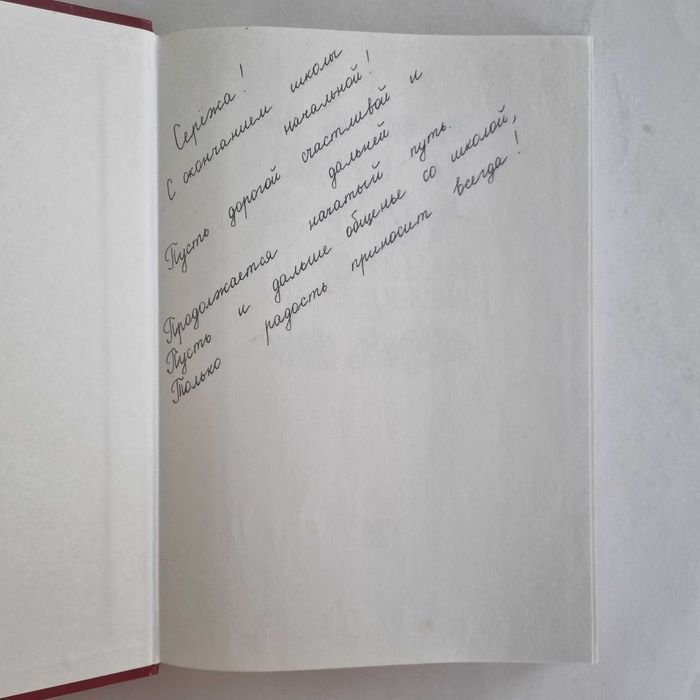 Серёжа!
С окончанием школы
начальной!
Пусть дорогой счастливой и
дальней
Продолжается начатый путь.
Пусть и дальше общенье со школой,
Только радость приносит всегда!